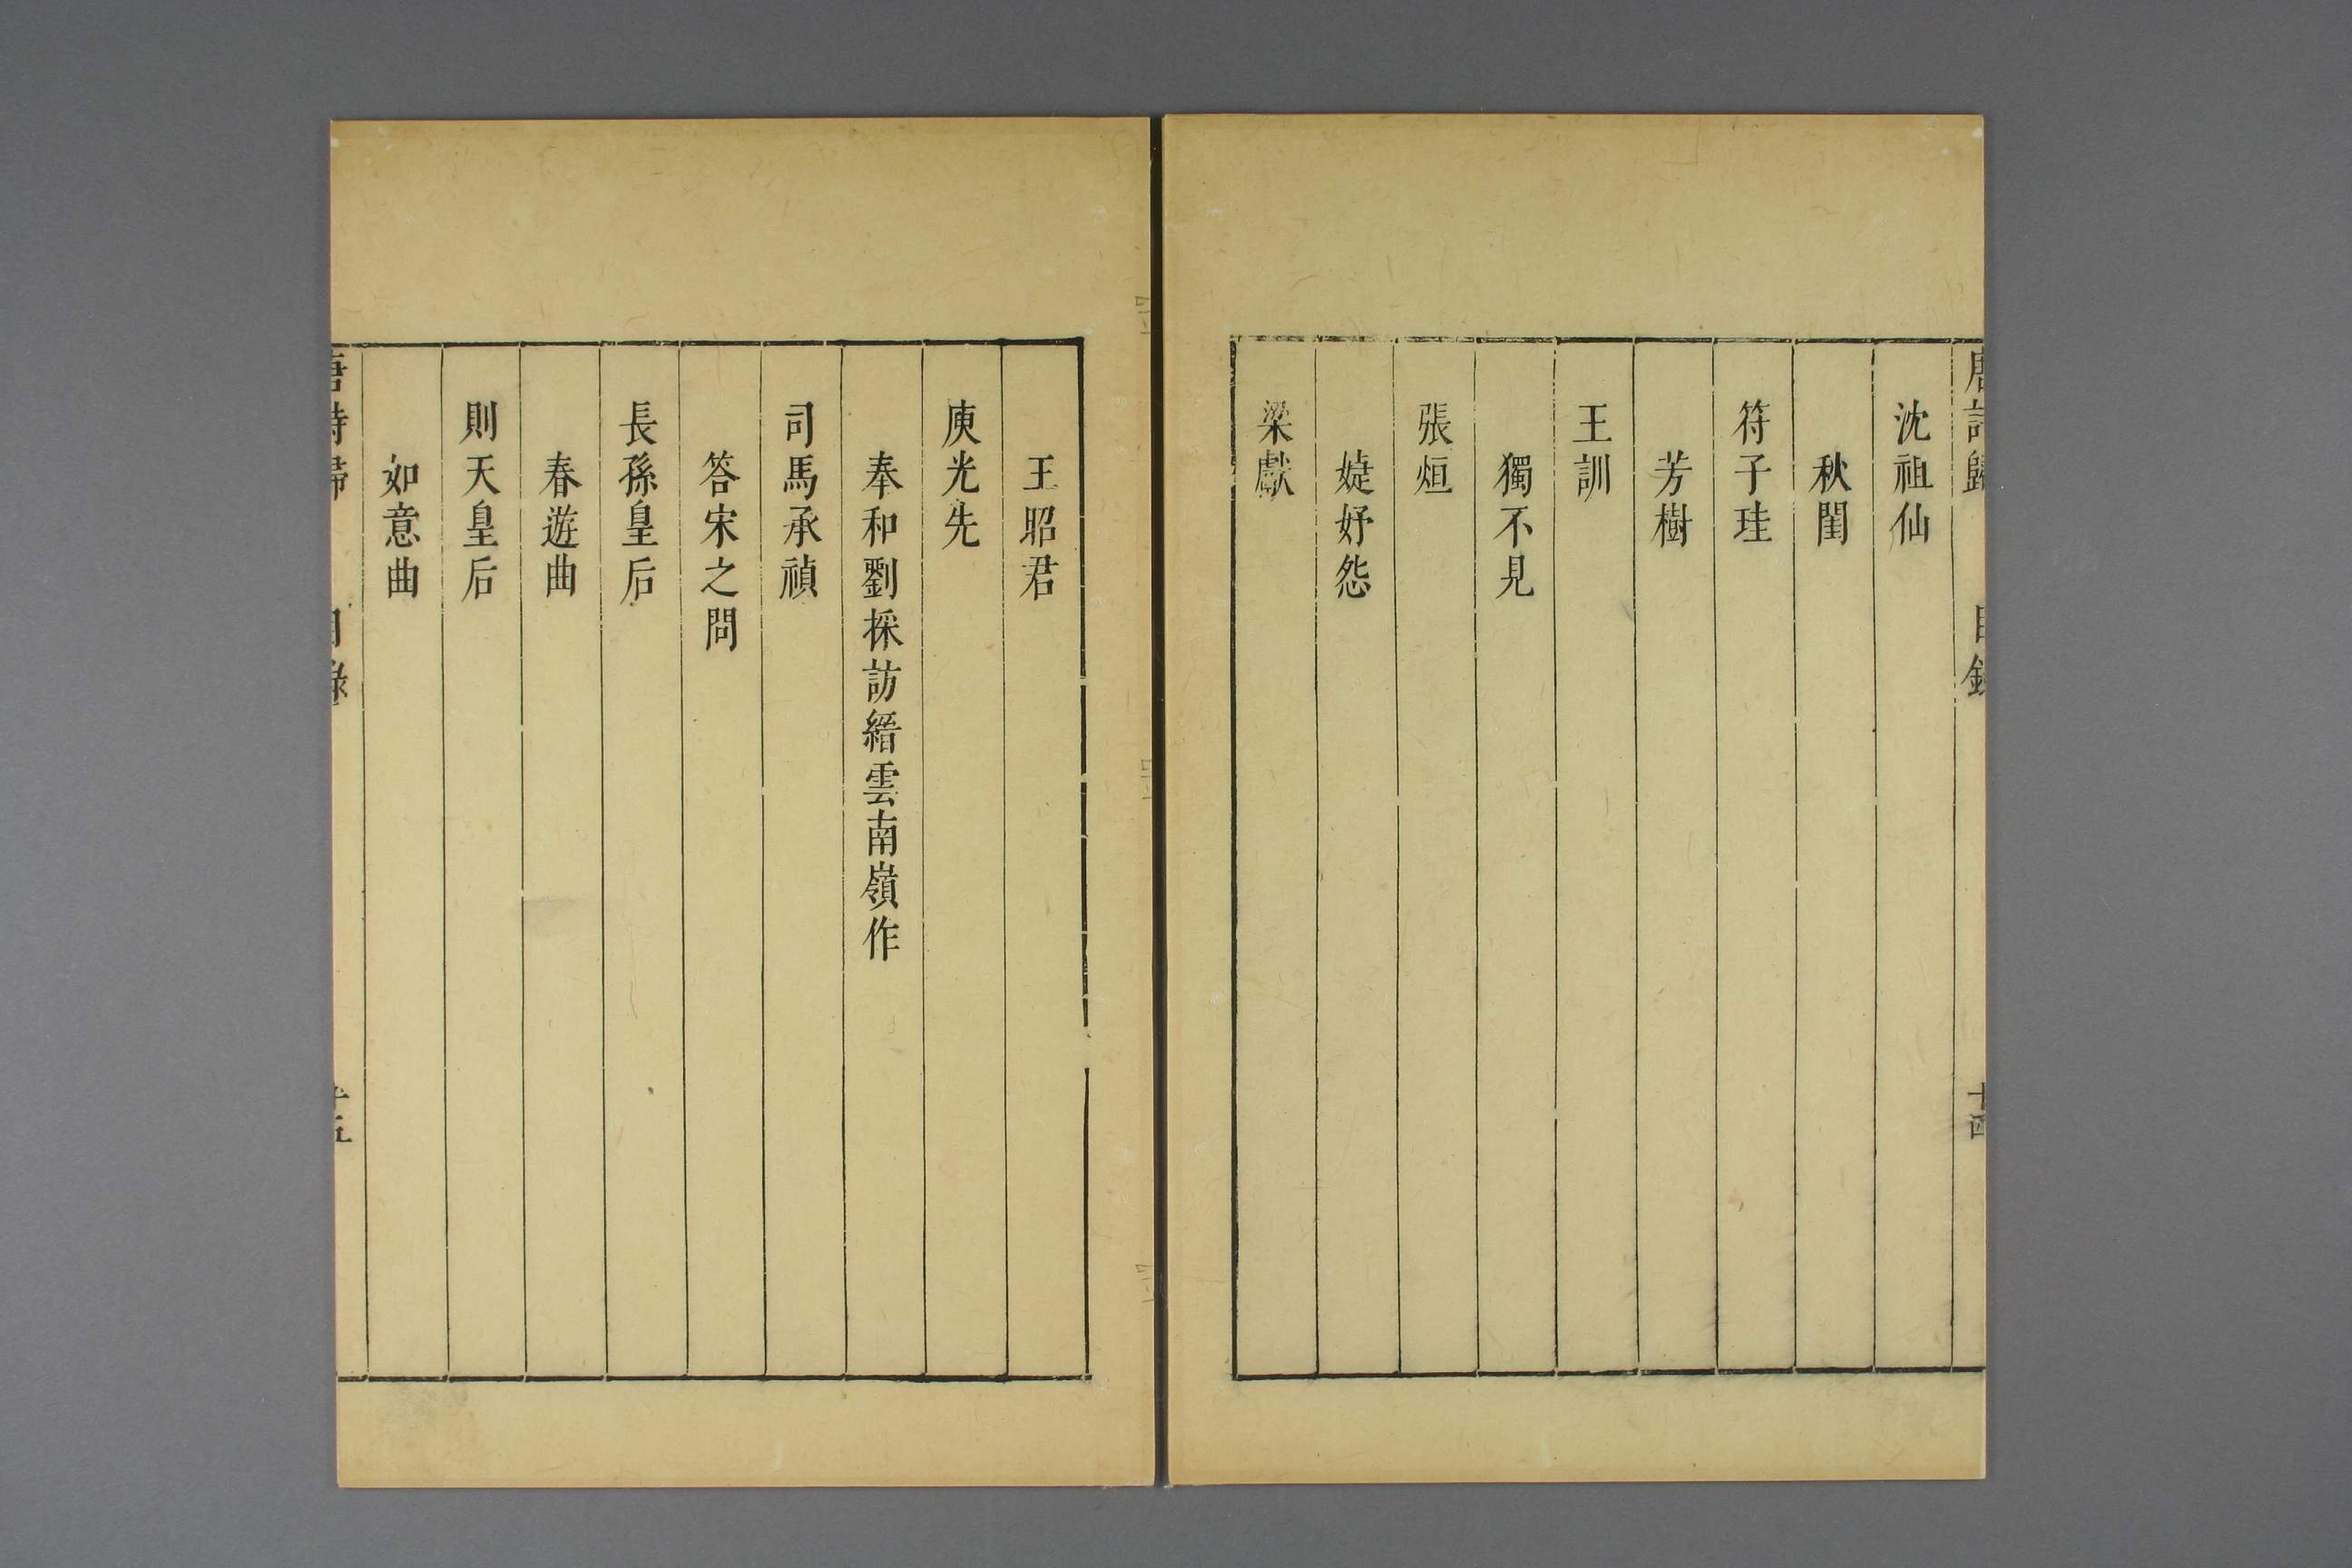 唐詩歸 目錄 十四
沈祖仙
秋閨
符子珪
芳樹
王訓
獨不見
張烜
婕妤怨
梁獻
王昭君
庾光先
奉和劉採訪縉雲南嶺作
司馬承禎
答宋之問
長孫皇后
春遊曲
則天皇后
如意曲
唐詩歸 目錄 十五